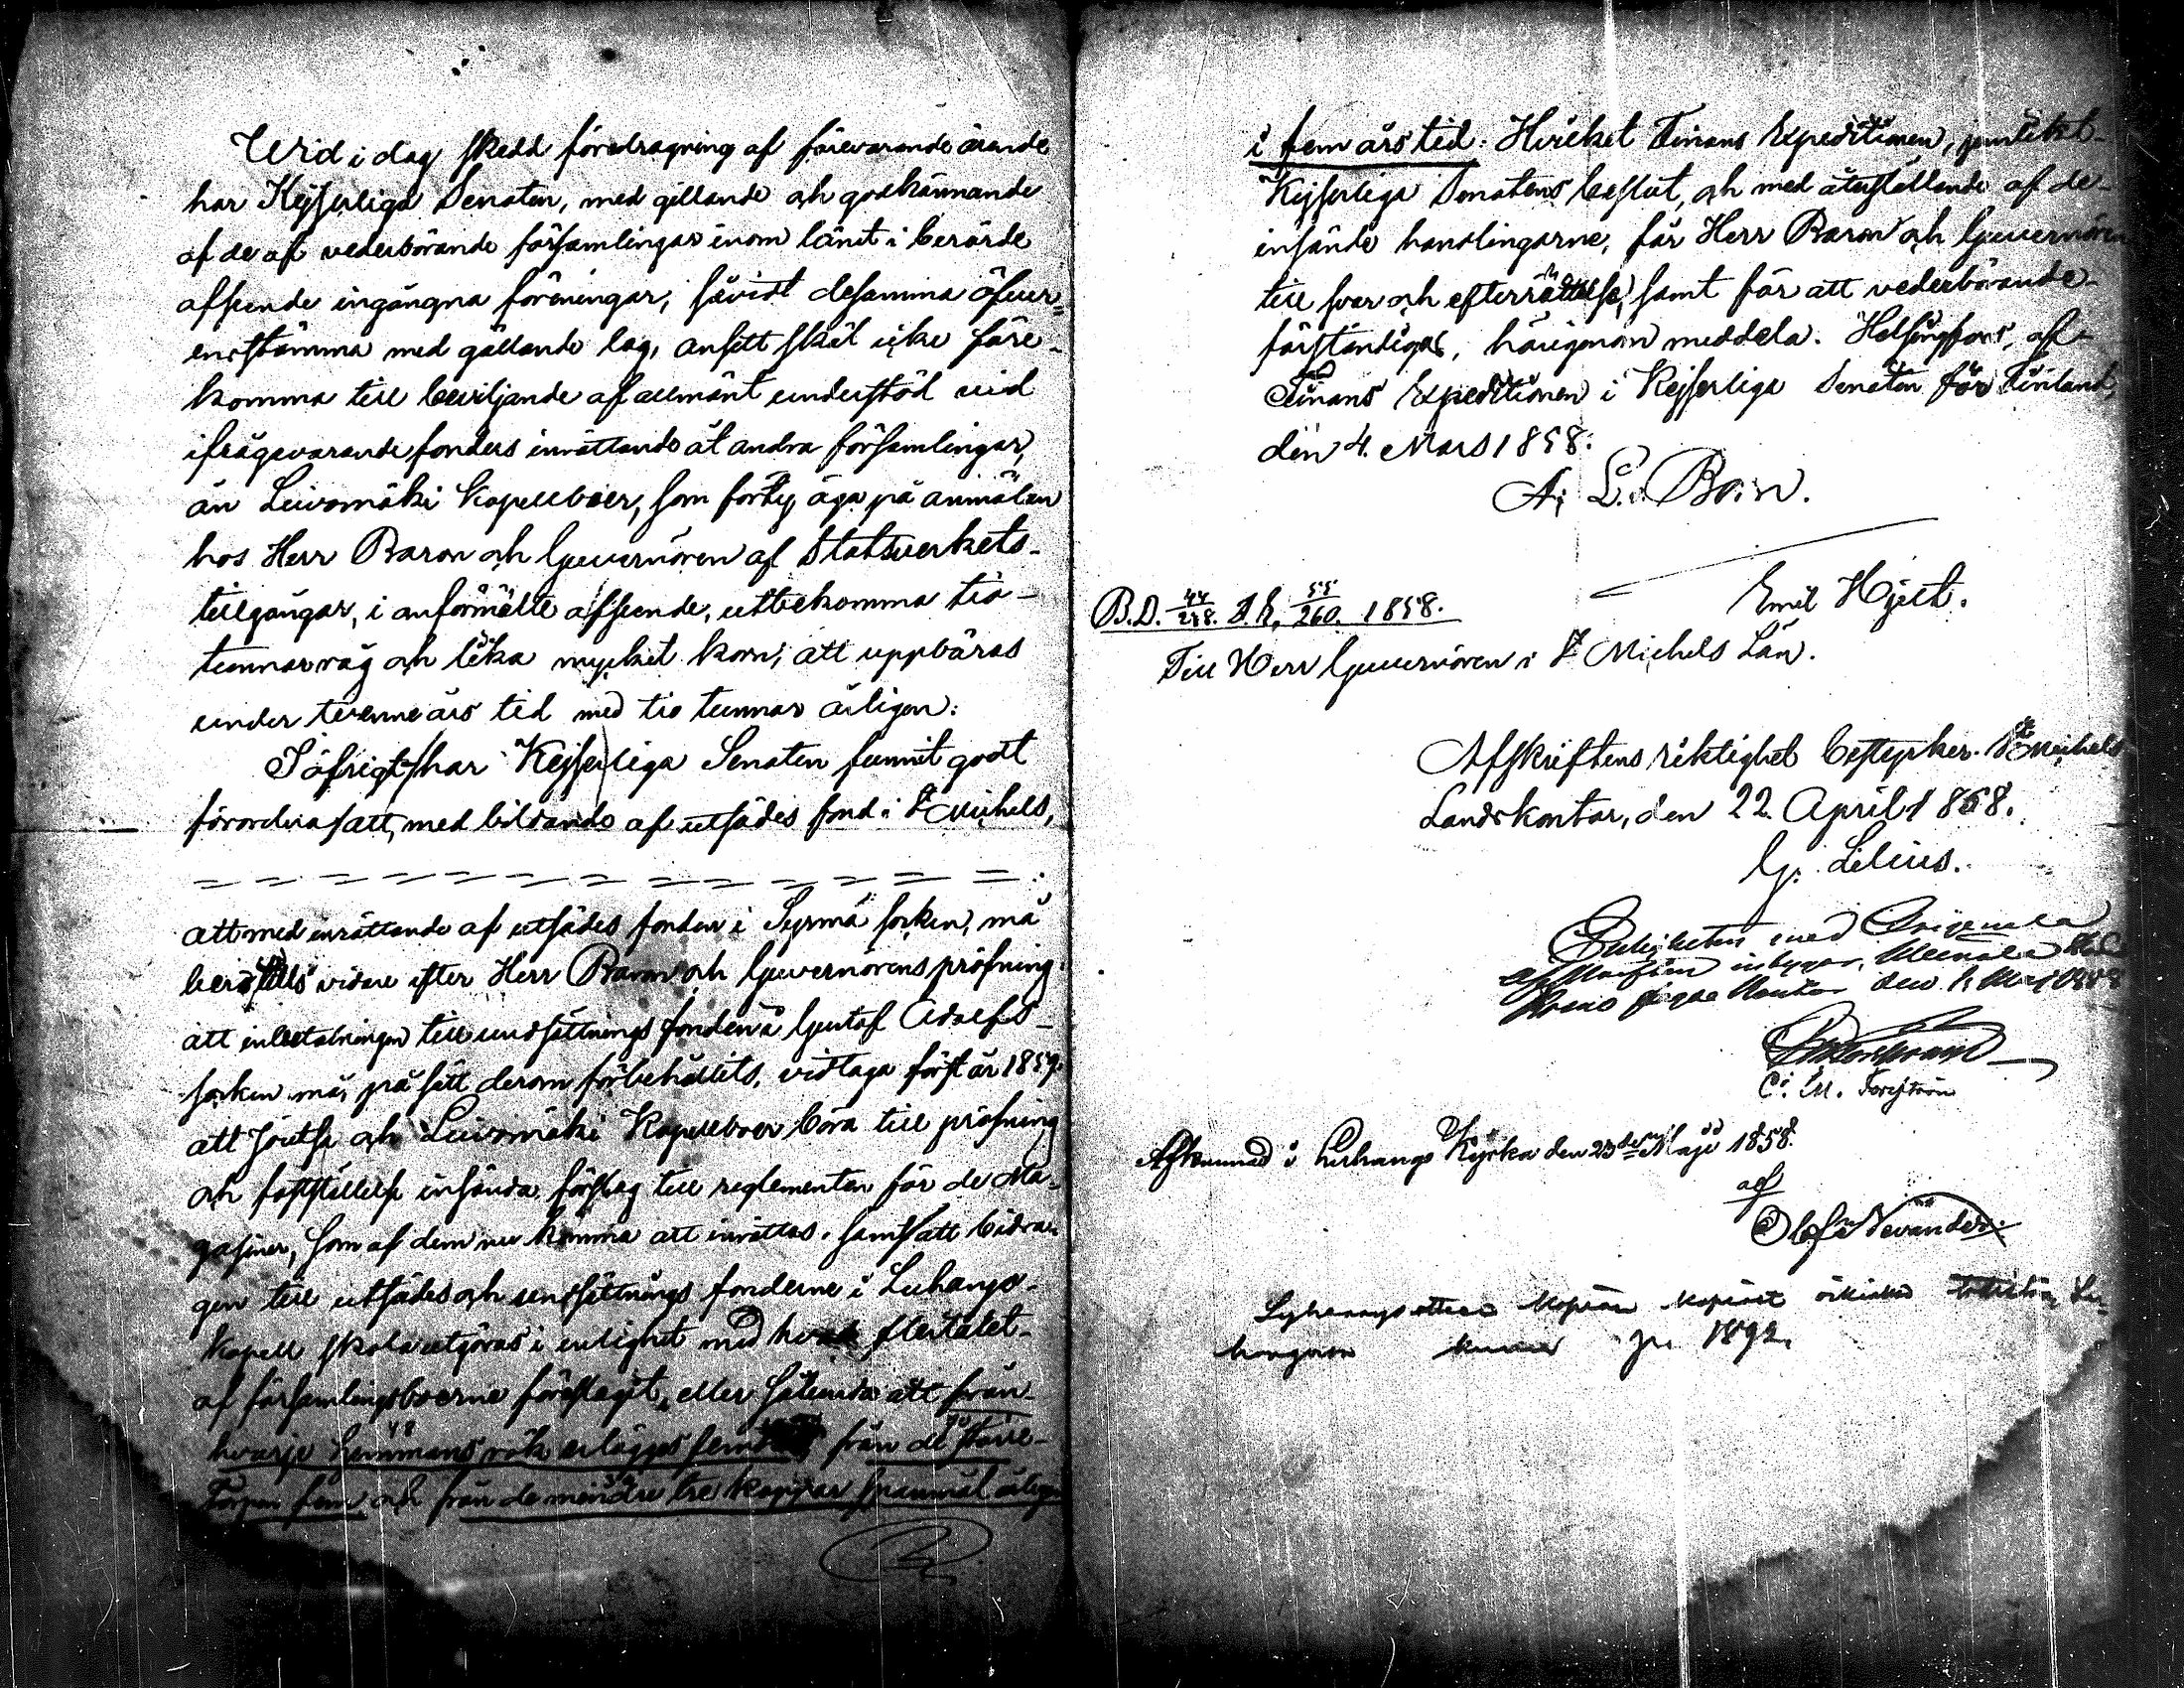 Wid i dag skedd föredragning af förevarande ärende
har Kejserliga Senaten, med gillande och godkännande
af de af vederbörande församlingar inom länet i berörde
afseende ingångna föreningar, såvidt desamma öfver=
ensstämma med gällande lag, ansett skäl icke före-
komma till beviljande af allmänt understöd vid
ifrågavarande fonders inrättande åt andra församlingar,
än Leivomäki Kapellboer, som förty äga på anmälan
hos Herr Baron och Guvernören af Statsverkets-
tillgångar, i anförmälte afseende, utbekomma tio-
tunnor råg och lika mycket korn, att uppbäras
under tvenne års tid med tio tunnor årligen:
I öfrigt har Kejserliga Senaten funnit godt
förordna att, med bildande af utsädes fond i St Michels,
= = = = = = = = = = = = = :
att med inrättande af utsädes fonden i Sysmä socken, må
bero tills vidare efter Herr Baron och Guvernörens pröfning
att inbetalningen till undsättnings fonden i Gustaf Adolfs-
socken må, på sätt derom förbehållits, vidtaga först år 1859.
att Joutsa och Leivomäki Kapellboer böra till pröfning
och fastställelse insända förslag till reglementen för de Ma-
gasiner, som af dem nu komma att inrättas, samt att bidra-
gen till utsädes och undsättnings fonderne i Luhango-
Kapell skola utgöras i enlighet med hvad flertalet-
af församlingsboerne föreslagit, eller sålunda att från-
hvarje hemmans rök erlägges fem från de större-
Torpen fem och från de mindre tre kappar spannmål årligen
i fem års tid: Hvilket Finans Expeditionen, jemlikt-
Kejserliga Senatens beslut, och med återställande af de-
insände handlingarne, får Herr Baron och Guvernören
till svar och efterrättelse, samt för att vederbörande-
förständigas, härigenom meddela. Helsingfors, af-
Finans Expeditionen i Kejserliga Senaten för Finland,
den 4. Mars 1858:
A. L. Born.
Emil Hjelt.
B.D. 44/248. A.R. 55/260. 1858.
Till Herr Guvernören i St Michels Län.
Afskriftens riktighet bestyrker. St Michels
Landskontor, den 22. April 1858.
G. Lilius.
Enligheten med Originalet
af intygar,
den 1 Maj 1858
C. M. Forsström
Afkunnad i Luhango Kyrka den 23dje Maji 1858.
af
Olof Nevander.
kopian
1892.